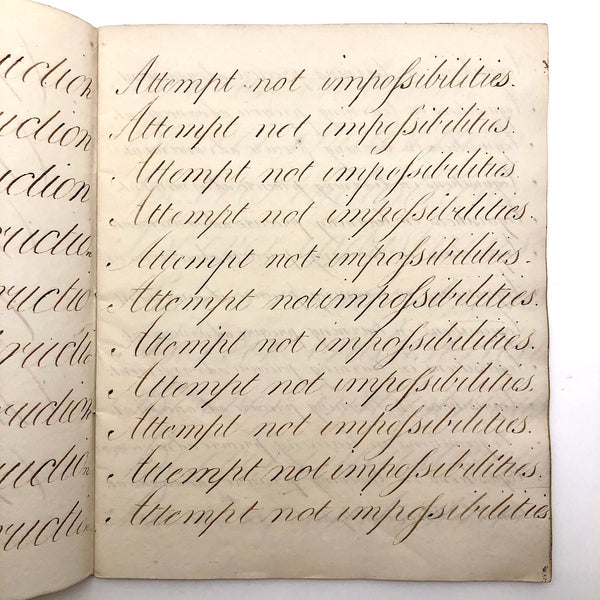 Attempt not impoſsibilities.
Attempt not impoſsibilities.
Attempt not impoſsibilities.
Attempt not impoſsibilities.
Attempt not impoſsibilities.
Attempt not impoſsibilities.
Attempt not impoſsibilities.
Attempt not impoſsibilities.
Attempt not impoſsibilities.
Attempt not impoſsibilities.
Attempt not impoſsibilities.